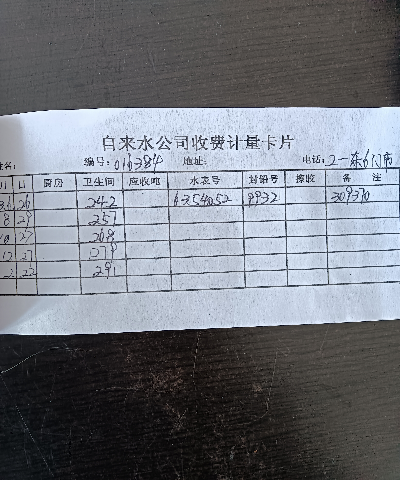 自来水公司收费计量卡片
名: 编号: 016384 地址: 电话:
月 日 厨房 卫生间 应收吨 水表号 封铅号 接收 备 注
26 242 6354052 9932 309370
8 29 257
10 27 268
12 27 279
2 22 291